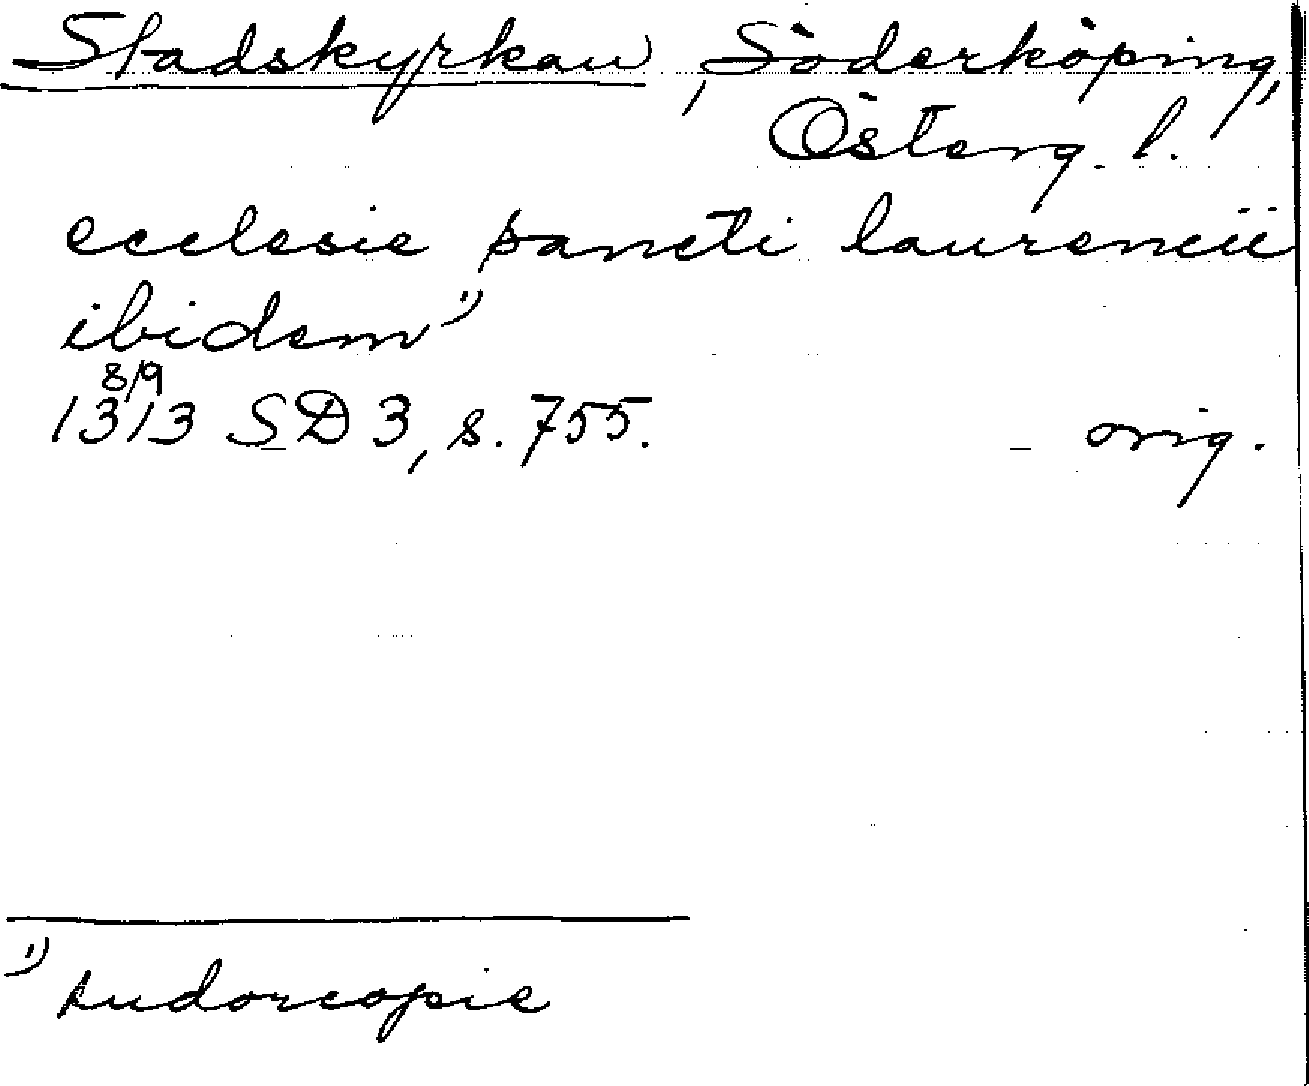 Stadskyrkan, Söderköping,
Österg. l.
ecclesie sancti laurencii
ibidem 1)
8/9
1313 SD 3, s. 755. orig.
1) sudorcopie